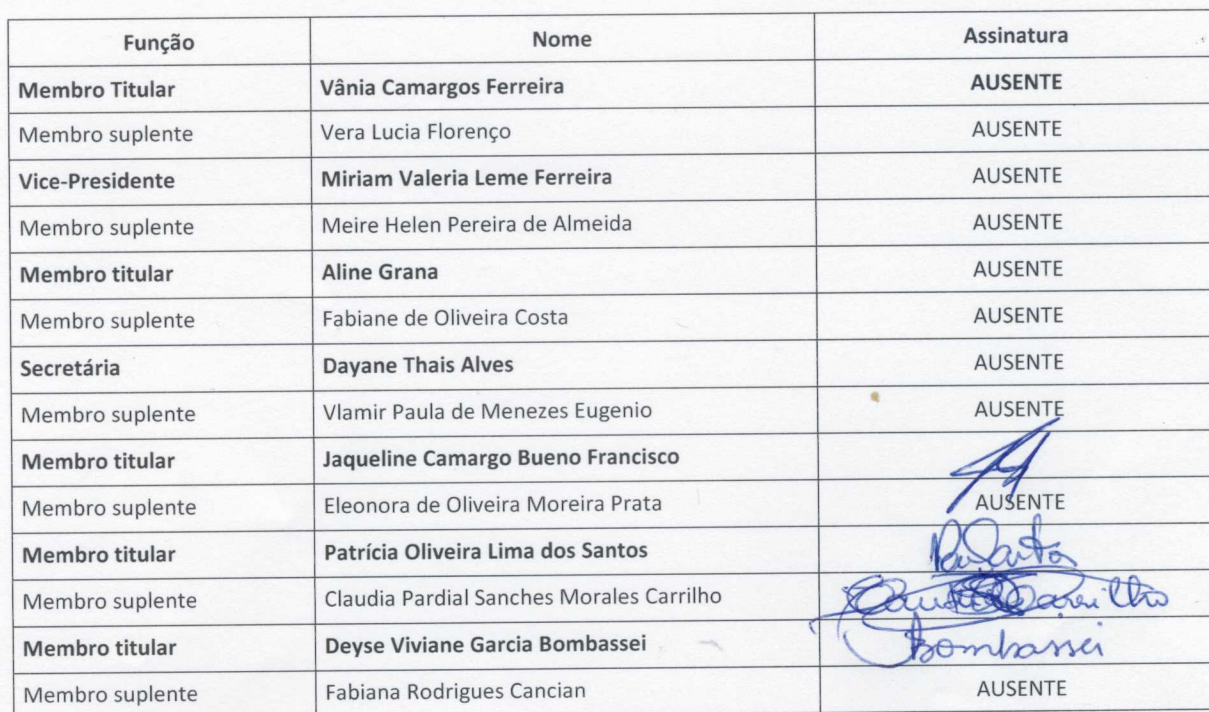 Função Nome Assinatura
Membro Titular Vânia Camargos Ferreira AUSENTE
Membro suplente Vera Lucia Florenço AUSENTE
Vice-Presidente Miriam Valeria Leme Ferreira AUSENTE
Membro suplente Meire Helen Pereira de Almeida AUSENTE
Membro titular Aline Grana AUSENTE
Membro suplente Fabiane de Oliveira Costa AUSENTE
Secretária Dayane Thais Alves AUSENTE
Membro suplente Vlamir Paula de Menezes Eugenio AUSENTE
Membro titular Jaqueline Camargo Bueno Francisco
Membro suplente Eleonora de Oliveira Moreira Prata AUSENTE
Membro titular Patrícia Oliveira Lima dos Santos
Membro suplente Claudia Pardial Sanches Morales Carrilho Carrilho
Membro titular Deyse Viviane Garcia Bombassei Bombassei
Membro suplente Fabiana Rodrigues Cancian AUSENTE